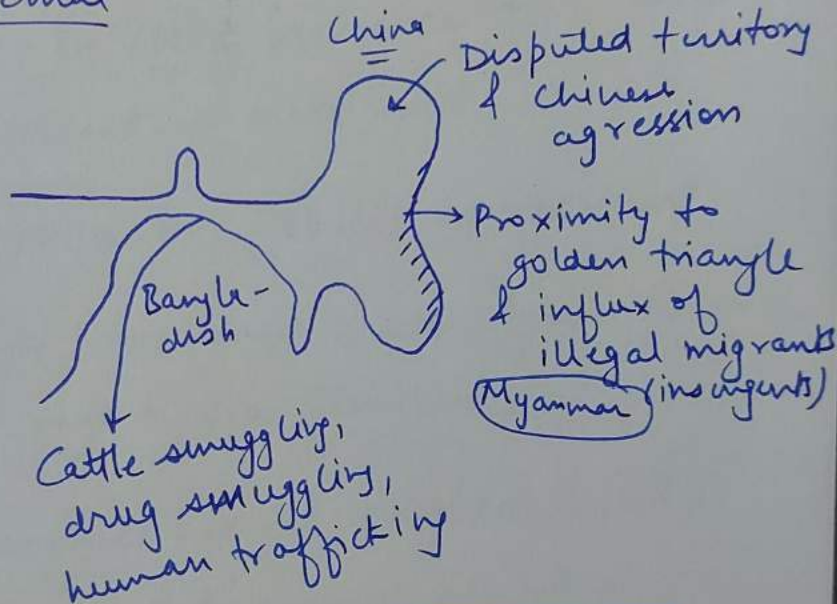 China
Disputed territory
& Chinese
agression
Proximity to
golden triangle
& influx of
illegal migrants
Myanmar (insurgents)
Bangla-
desh
Cattle smuggling,
drug smuggling,
human trafficking